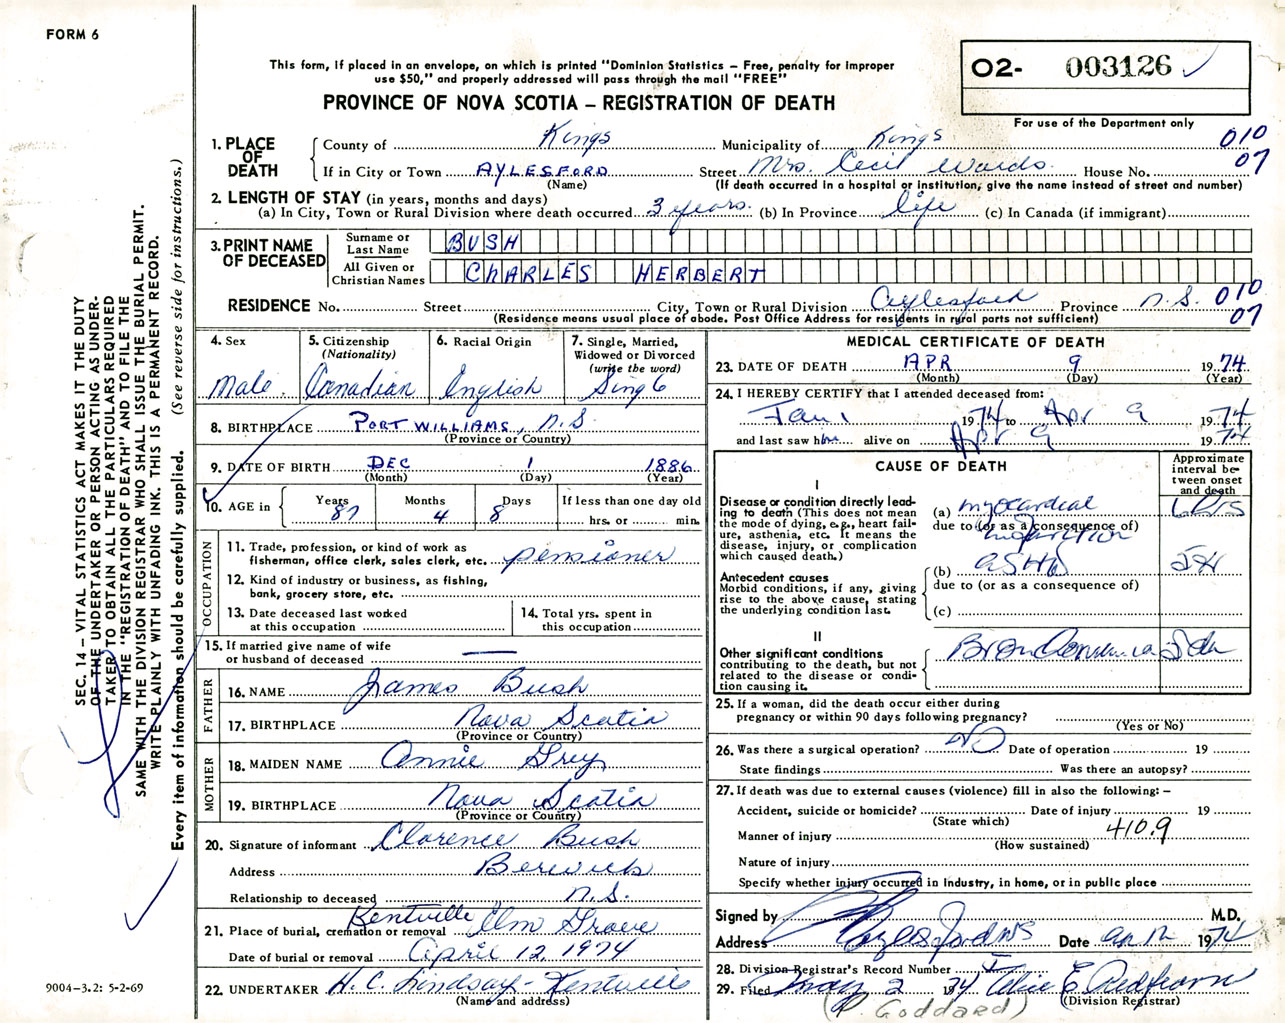 FORM 6
This form, if placed in an envelope, on which is printed "Dominion Statistics – Free, penalty for improper
use $50," and properly addressed will pass through the mail "FREE"
PROVINCE OF NOVA SCOTIA – REGISTRATION OF DEATH
O2- 003126
For use of the Department only
1. PLACE OF DEATH
County of Kings Municipality of Kings 010
If in City or Town AYLESFORD Street Mrs. Cecil Wards House No. 07
(Name) (If death occurred in a hospital or institution, give the name instead of street and number)
2. LENGTH OF STAY (in years, months and days)
(a) In City, Town or Rural Division where death occurred 3 years (b) In Province life (c) In Canada (if immigrant)
3. PRINT NAME OF DECEASED
Surname or Last Name BUSH
All Given or Christian Names CHARLES HERBERT
RESIDENCE No. Street City, Town or Rural Division Aylesford Province N.S. 010
(Residence means usual place of abode. Post Office Address for residents in rural parts not sufficient) 07
4. Sex Male
5. Citizenship (Nationality) Canadian
6. Racial Origin English
7. Single, Married, Widowed or Divorced (write the word) Single
8. BIRTHPLACE PORT WILLIAMS, N.S.
(Province or Country)
9. DATE OF BIRTH DEC 1 1886
(Month) (Day) (Year)
10. AGE in Years 87 Months 4 Days 8 If less than one day old
hrs. or min.
OCCUPATION
11. Trade, profession, or kind of work as
fisherman, office clerk, sales clerk, etc. pensioner
12. Kind of industry or business, as fishing,
bank, grocery store, etc.
13. Date deceased last worked
at this occupation
14. Total yrs. spent in
this occupation
15. If married give name of wife
or husband of deceased —
FATHER
16. NAME James Bush
17. BIRTHPLACE Nova Scotia
(Province or Country)
MOTHER
18. MAIDEN NAME Annie Grey
19. BIRTHPLACE Nova Scotia
(Province or Country)
20. Signature of informant Clarence Bush
Address Berwick
Relationship to deceased N.S.
21. Place of burial, cremation or removal Kentville Elm Grove
Date of burial or removal April 12 1974
22. UNDERTAKER H. C. Lindsay - Kentville
(Name and address)
MEDICAL CERTIFICATE OF DEATH
23. DATE OF DEATH APR 9 1974
(Month) (Day) (Year)
24. I HEREBY CERTIFY that I attended deceased from:
Jan 1 1974 to Apr 9 1974
and last saw him alive on Apr 9 1974
CAUSE OF DEATH
Approximate interval between onset and death
I
Disease or condition directly leading to death (This does not mean the mode of dying, e.g., heart failure, asthenia, etc. It means the disease, injury, or complication which caused death.)
(a) myocardial
due to (or as a consequence of)
infarction
Antecedent causes
Morbid conditions, if any, giving rise to the above cause, stating the underlying condition last.
(b) ASHD
due to (or as a consequence of)
(c)
II
Other significant conditions
contributing to the death, but not related to the disease or condition causing it.
25. If a woman, did the death occur either during
pregnancy or within 90 days following pregnancy?
(Yes or No)
26. Was there a surgical operation? NO Date of operation 19
State findings Was there an autopsy?
27. If death was due to external causes (violence) fill in also the following: –
Accident, suicide or homicide? Date of injury 19
(State which)
Manner of injury 410.9
(How sustained)
Nature of injury
Specify whether injury occurred in Industry, in home, or in public place
Signed by M.D.
Address Aylesford NS Date Ap 12 1974
28. Division Registrar's Record Number
29. Filed May 2 1974 Alice E Redfearn
(Division Registrar)
(P. Goddard)
SEC. 14 – VITAL STATISTICS ACT MAKES IT THE DUTY
OF THE UNDERTAKER OR PERSON ACTING AS UNDER-
TAKER TO OBTAIN ALL THE PARTICULARS REQUIRED
IN THE "REGISTRATION OF DEATH" AND TO FILE THE
SAME WITH THE DIVISION REGISTRAR WHO SHALL ISSUE THE BURIAL PERMIT.
WRITE PLAINLY WITH UNFADING INK. THIS IS A PERMANENT RECORD.
Every item of information should be carefully supplied. (See reverse side for instructions.)
9004-3.2: 5-2-69